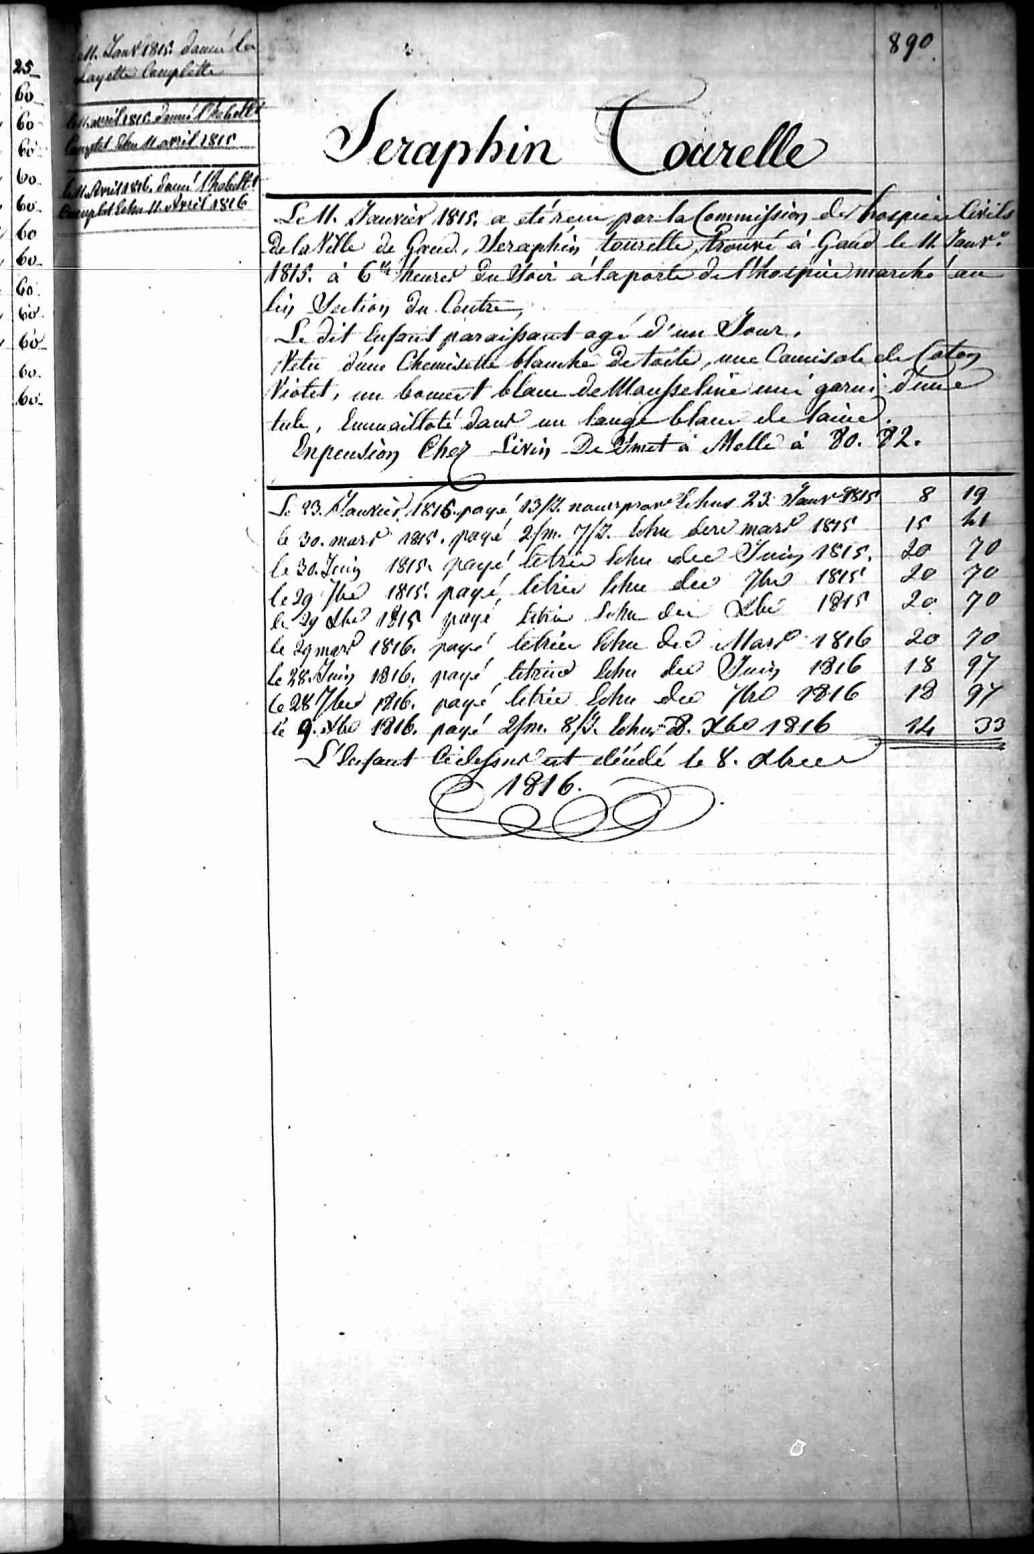 25
60
60
60
60
60
60
60
60
60
60
60
60
le 11. Janv 1815. donné la
Layette Complette
le 11. avril 1815 donné l'habillt
Complet Echu 11 avril 1815
le 11. Avril 1816. donné l'habillt
Complet Echu 11. Avril 1816
890
Seraphin Tourelle
Le 11. Janvier 1815. a eté reçu par la Commission des hospices Civils
de la Ville de Gand, Seraphin tourelle, trouvé à Gand le 11 Janvr
1815. à 6 heures du Soir à la porte de l'hospice marché au
lin Section du Centre,
Le dit Enfant paraissant agé d'un Jour,
Vetu d'une Chemisette blanche de toile, une Camisole de Coton
Violet, un bonnet blanc de Mousseline uni garni d'une
tule, Emmailloté dans un lange blanc de laine.
En pension Chez Livin De Smet à Melle à 80. 82.
Le 23. Janvier 1816. payé 13/J. Echus 23 Janvr 1815 8 19
le 30. mars 1815. payé 2/m. 7/J. Echu mars 1815 15 41
le 30. Juin 1815. payé letrier Echu de Juin 1815. 20 70
le 29 7bre 1815. payé, letrier Echu de 7bre 1815 20 70
le 29 Xbre 1815 payé letrier Echu de Xbre 1815 20 70
le 29 mars 1816. payé letrier Echu de Mars 1816 20 70
le 28. Juin 1816. payé letrier Echu de Juin 1816 18 97
le 28 7bre 1816. payé letrier Echu de 7bre 1816 18 97
le 9. Xbre 1816. payé 2/m. 8/J. Echus 8. Xbre 1816 14 33
L'Enfant Cidessus est décédé le 8. Xbre
1816.